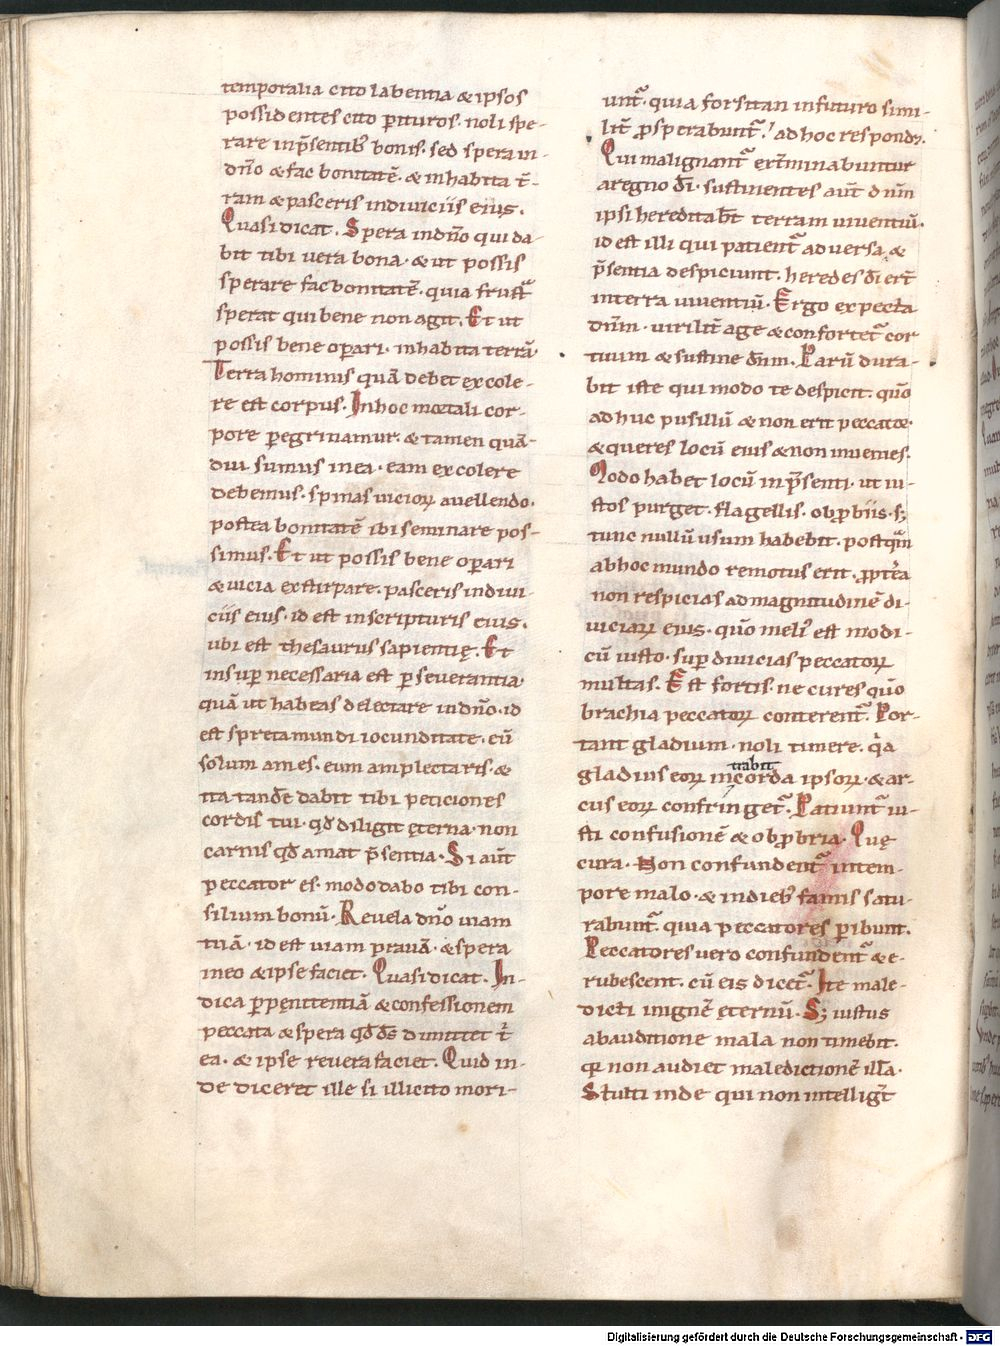 temporalia cito labentia & ipsos
possidentes cito p̄ituros· noli spe-
rare inp̄sentib; bonis· sed spera in-
dn̄o & fac bonitatē· & inhabita t̄-
ram & pasceris indiuiciis eius.
Quasi dicat. Spera indn̄o qui da-
bit tibi uera bona· & ut possis
sperare fac bonitatē· quia frustᷓ
sperat qui bene non agit. Et ut
possis bene op̄ari· inhabita terrā·
Terra hominis quā debet excole-
re est corpus. Inhoc mortali cor-
pore p̄egrinamur· & tamen quā-
diu sumus in ea· eam excolere
debemus· spinas uicioꝝ auellendo·
postea bonitatē ibi seminare pos-
simus. Et ut possis bene op̄ari
& uicia exstirpare· pasceris indiui-
ciis eius· id est inscripturis eius·
ubi est thesaurus sapientię. Et
insup̄ necessaria est p̄seuerantia·
quā ut habeas delectare indn̄o· id
est spreta mundi iocunditate· eū
solum ames· eum amplectaris· &
ita tandē dabit tibi peticiones
cordis tui· qd̄ diligit ęterna· non
carnis qd̄ amat p̄sentia. Si aūt
peccator es· modo dabo tibi con-
silium bonū. Reuela dn̄o uiam
tuā· id est uiam prauā· & spera
in eo & ipse faciet. Quasi dicat. In-
dica p̄ pęnitentiā & confessionem
peccata & spera qd̄ ds̄ dimittet t̄
ea· & ipse reuera faciet. Quid in-
de diceret ille si illicito mori-
untᷓ· quia forsitan infuturo simi-
lit̄ ꝓsperabuntᷓ? ad hoc respond;.
Qui malignantᷓ ext̄minabuntur
aregno dī· sustinentes aūt dnm̄
ipsi hereditab̄t terram uiuentiū·
id est illi qui patientᷓ aduersa &
p̄sentia despiciunt. heredes dī er̄t
interra uiuentiū. Ergo expecta
dnm̄· uirilit̄ age & confortetᷓ cor
tuum & sustine dnm̄. Parū dura-
bit iste qui modo te despicit. quō
adhuc pusillū & non erit peccator·
& queres locū eius & non inuenies.
Modo habet locū inp̄senti· ut iu-
stos purget· flagellis· obp̄biis· s;
tunc nullū usum habebit· postqᷓm
abhoc mundo remotus erit. ꝓpt̄ea
non respicias ad magnitudinē di-
uiciarū eius· quō meli᷒ est modi-
cū iusto· sup̄ diuicias peccatoꝝ
multas. Est fortis· ne cures quō
brachia peccatoꝝ conterentᷓ. Por-
tant gladium· noli timere· qᷓa
trabit
gladius eoꝝ incorda ipsoꝝ· & ar-
cus eoꝝ confringetᷓ. Patiuntᷓ iu-
sti confusionē & obp̄bria. Quę
cura. Non confundentᷓ intem-
pore malo· & indieb; famis satu-
rabuntᷓ. quia peccatores p̄ibunt.
Peccatores uero confundentᷓ & e-
rubescent· cū eis dicetᷓ. Ite male-
dicti inignē ęternū. S; iustus
abauditione mala non timebit·
qᷓ non audiet maledictionē illā.
Stulti inde qui non intelligt̄